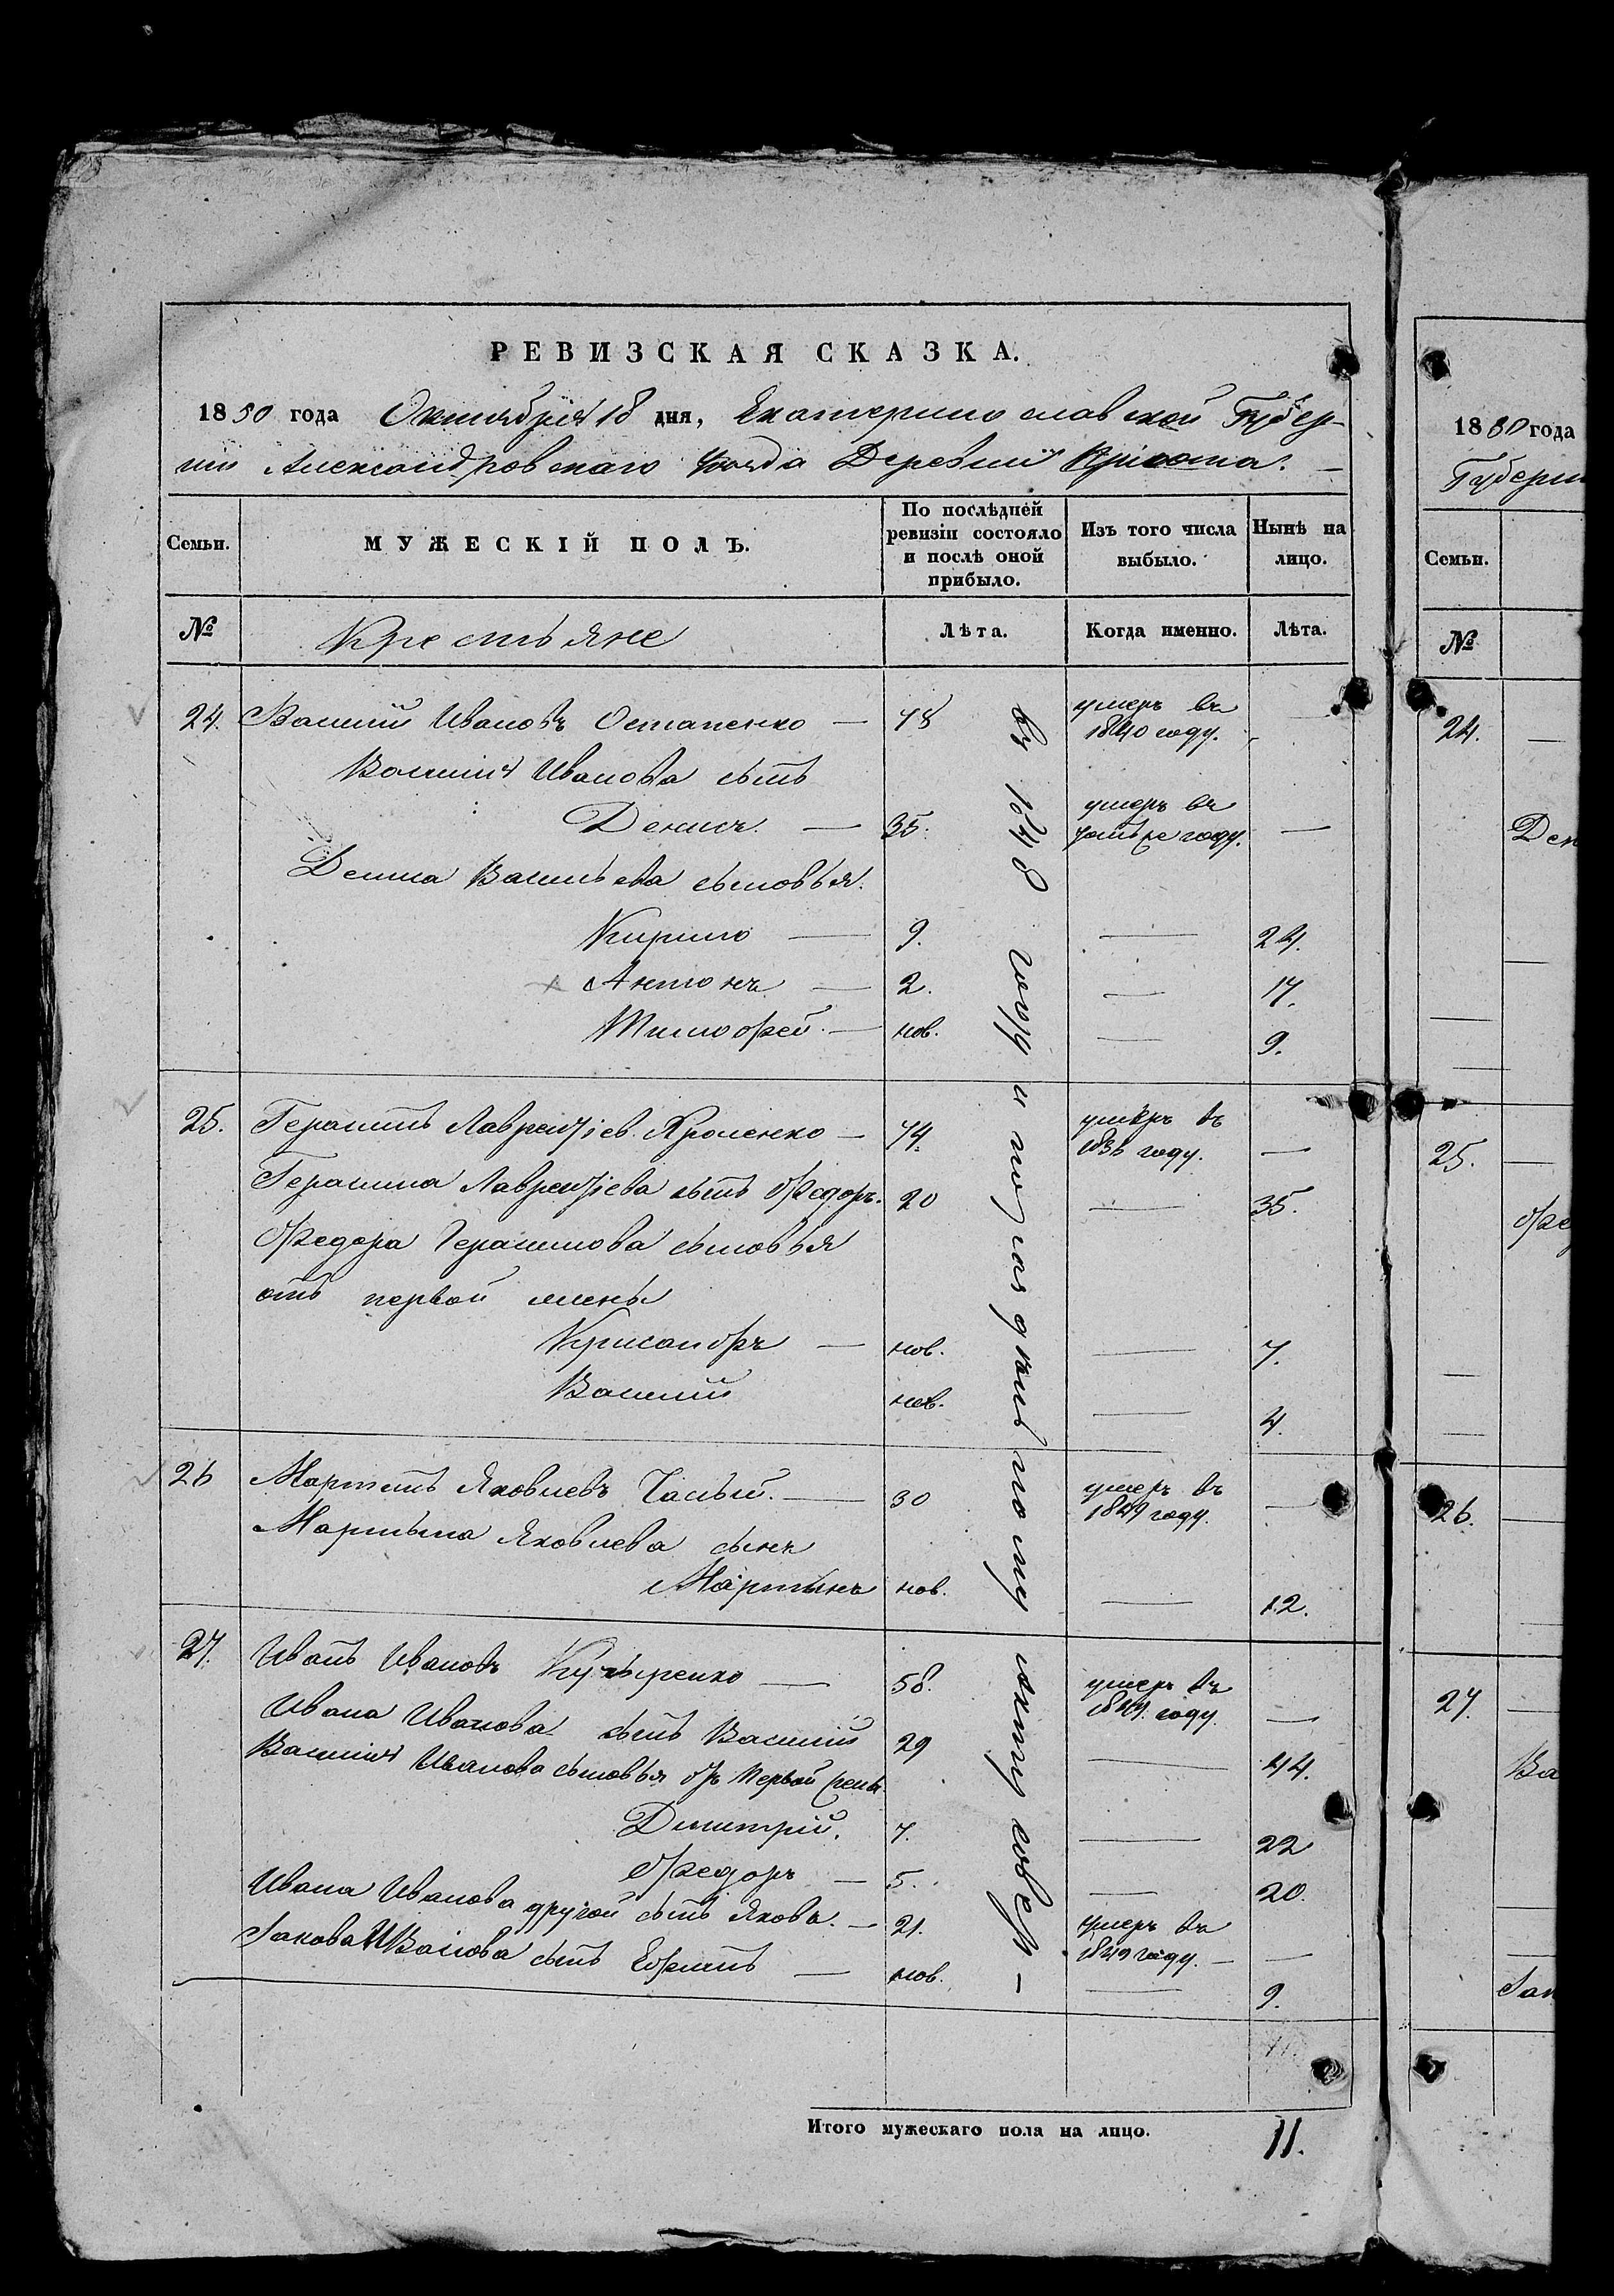 РЕВИЗСКАЯ СКАЗКА.
1850 года Октября 18 дня, Екатеринославской Губер-
нии Александровскаго Уезда Деревни
Семьи. МУЖЕСКІЙ ПОЛЪ. По послѣдней ревизіи состояло и послѣ оной прибыло. Изъ того числа выбыло. Нынѣ на лицо.
№ Крестьяне Лѣта. Когда именно. Лѣта.
24. Василий Ивановъ Остапенко — 48 умеръ въ 1840 году. —
Василия Иванова сынъ
Денисъ. — 35. умеръ въ году. —
Дениса Васильева сыновья.
Кирило — 9. — 24.
Антонъ — 2. — 17.
Тимофей. — нов. — 9.
25. Герасимъ Лаврентіев. — 74. умеръ въ 1836 году. —
Герасима Лаврентіева сынъ Федоръ. 20 — 35.
Федора Герасимова сыновья
отъ первой жены
Крисанфъ — нов. — 7.
Василий нов. — 4.
26 Мартынъ Яковлевъ — 30 умеръ въ 1849 году. —
Мартына Яковлева сынъ
Мартынъ нов. — 12.
27. Иванъ Ивановъ — 58. умеръ въ году. —
Ивана Иванова сынъ Василий 29 — 44.
Василия Иванова сыновья от первой жены
Димитрій. 7. — 22
Федоръ — 5. — 20.
Ивана Иванова другой сынъ Яковъ. — 21. умеръ въ 1849 году. — —
Иакова Иванова сынъ Ефимъ — нов. — 9.
въ 1848 году и по
Итого мужескаго пола на лицо. 11.
1850 года
Губерн
Семьи.
№
24.
Ден
25.
Фед
26.
27.
Ва
Иак